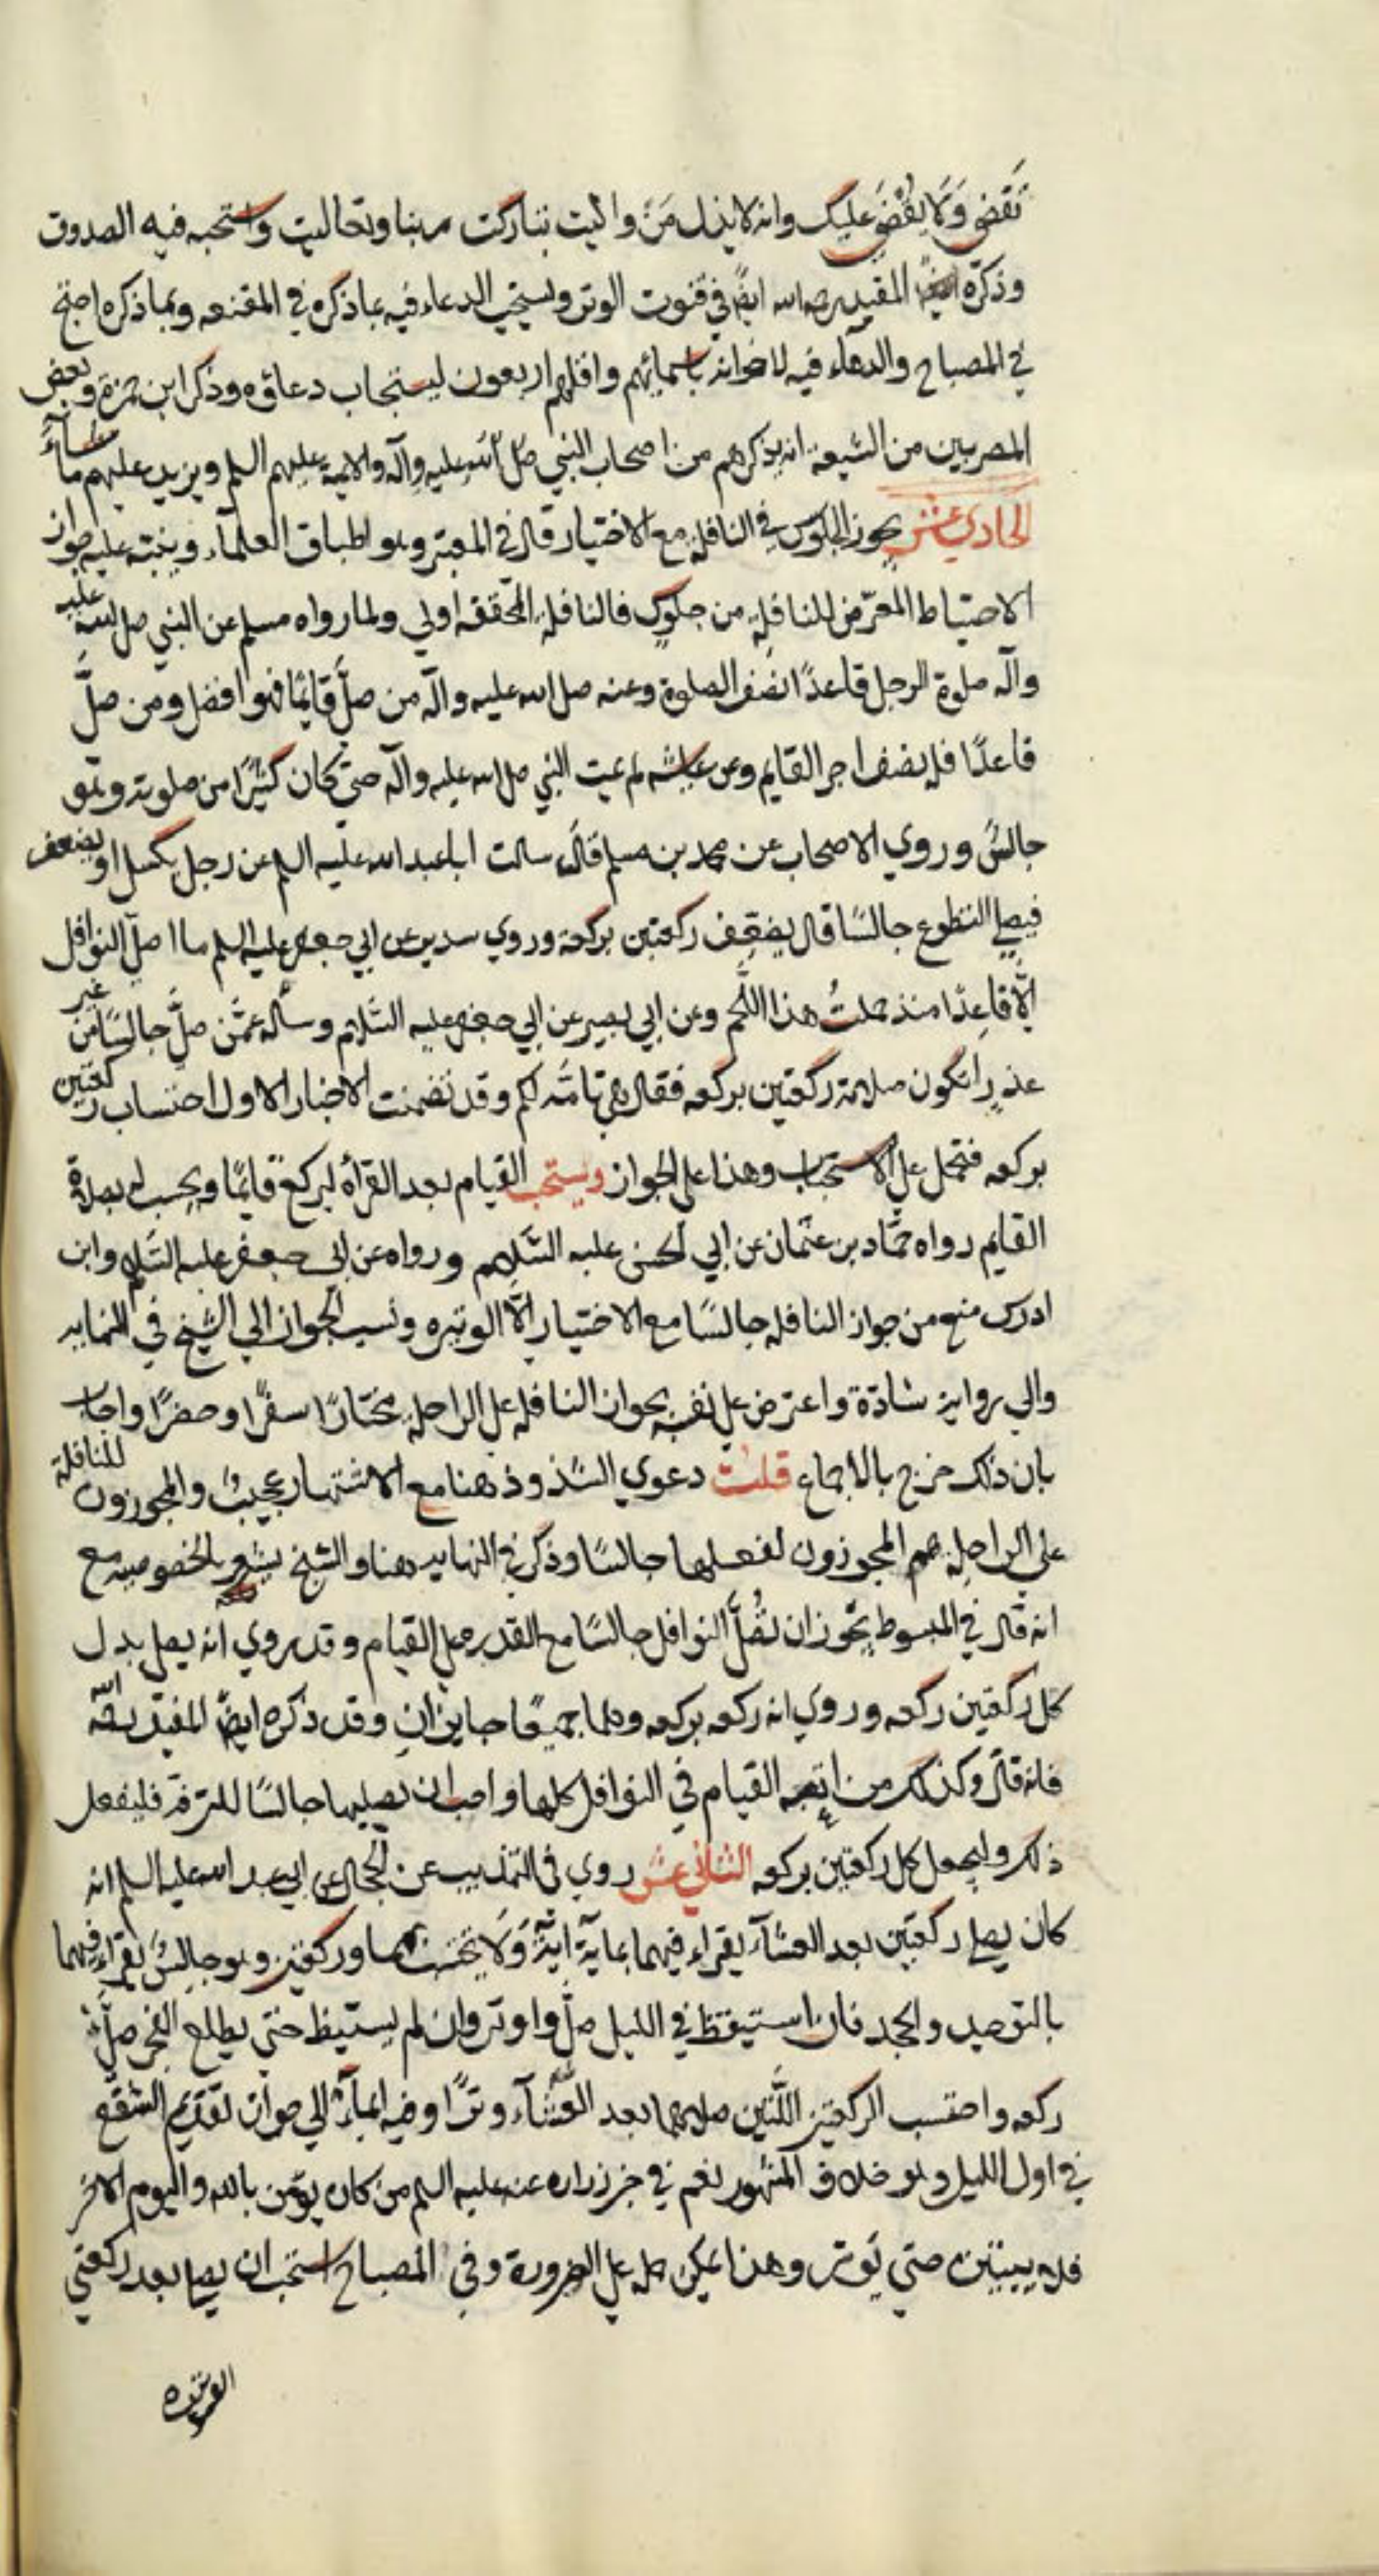 تَقضي وَلَا يُقضَي عليك وانه لا يذل مَن واليت تباركت ربنا وتعاليت واستحبه فيه الصدوق
وذكره المفيد رحمه الله ايضً في قنوت الوتر ويستحب الدعاء فيه بما ذكره في المقنعه وبما ذكره الشيخ
في المصباح والدعاء فيه لاخوانه باسمائهم واقلهم اربعون ليستجاب دعاؤه وذكر ابن حمزة وبعض
المصريين من الشيعة انه يذكرهم من اصحاب النبي صلى الله عليه وآله والايمة عليهم السلم ويزيد عليهم ما شآءَ
الحادي عشر يجوز الجلوس في النافلة مع الاختيار قال في المعتبر وهو اطباق العلمآء وينبه عليه جواز
الاحتياط المعرّض للنافلة من جلوس فالنافلة المحققه اولي ولما رواه مسلم عن النبي صلى الله عليه
وآله صلوة الرجل قاعدًا نصف الصلوة وعنه صلى الله عليه وآله من صلَّ قايمًا فهو افضل ومن صلَّ
قاعدًا فله نصف اجر القايم وعن عايشه لم يمت النبي صلى الله عليه وآله حتي كان كثيرًا من صلوته وهو
جالسٌ وروي الاصحاب عن محمد بن مسلم قال سالت اباعبد الله عليه السلم عن رجل يكسل او يضعف
فيصلي التطوع جالسًا قال يضعّف ركعتين بركعة وروي سدير عن ابي جعفر عليه السلم ما اصلّ النوافل
اِلّا قاعِدًا منذ حملتُ هذا اللَّحم وعن ابي بصير عن ابي جعفر عليه السَّلام وسأله عمّن صلَّ جالسًا من غير
عذرٍ اتكون صلاته ركعتين بركعه فقال هي تامَّه لكم وقد تضمنت الاخبار الاول احتساب ركعتين
بركعه فتحمل علي الاستحباب وهذا علي الجواز ويستحب القيام بعد القرأة ليركع قايمًا ويحسب له بصلاة
القايم رواه حمَّاد بن عثمان عن ابي الحسن عليه السَّلام ورواه عن ابي جعفر عليه السَّلم وابن
ادرس منع من جواز النافله جالسًا مع الاختيار اِلَّا الوتيره ونسب الجواز الي الشيخ في النهايه
والي رواية شاذة واعترض علي نفسه بجواز النافله علي الراحلة مختارًا سفرًا وحضرًا واجاب
بان ذلك خرج بالاجماع قلت دعوي الشذوذ هنا مع الاشتهار عجيبٌ والمجوزون للنافلة
علي الراحلة هم المجوزون لفعلها جالسًا وذكر في النهايه هنا والشيخ يشعر بالخصوصيه مع
انه قال في المبسوط يجوز ان تُصلَّ النوافل جالسًا مع القدره علي القيام وقد روي انه يصل بدل
كل ركعتين ركعه وروي انه ركعه بركعه وهما جميعًا جايزان وقد ذكره ايضًا المفيد رحمه الله
فانه قال وكذلك من اتعبه القيام في النوافل كلها واحب ان يصليها جالسًا للترفّه فليفعل
ذلك وليجعل كل ركعتين بركعه الثاني عش روي في التهذيب عن الحجال عن ابي عبد الله عليه السلم انه
كان يصلي ركعتين بعد العشآء يقراء فيهما بماية آيةٍ وَلَا يحتسب بهما وركعتين وهو جالسٌ يقراء فيهما
بالتوحيد والجحد فان استيقظ في الليل صلَّ واوتر وان لم يستيقظ حتي يطلع الفجر صلَّ
ركعه واحتسب الركعتين اللَّتين صلاهما بعد العشآء وترًا وفيه ايمآءٌ الي جواز تقديم الشفع
في اول الليل وهو خلاف المشهور نعم في خبر زراره عنه عليه السلم من كان يؤمن بالله واليوم الاخر
فلا يبيتن حتي يوتر وهذا يمكن حمله علي الضرورة وفي المصباح استحب ان يصلي بعد ركعتي
الوتيره